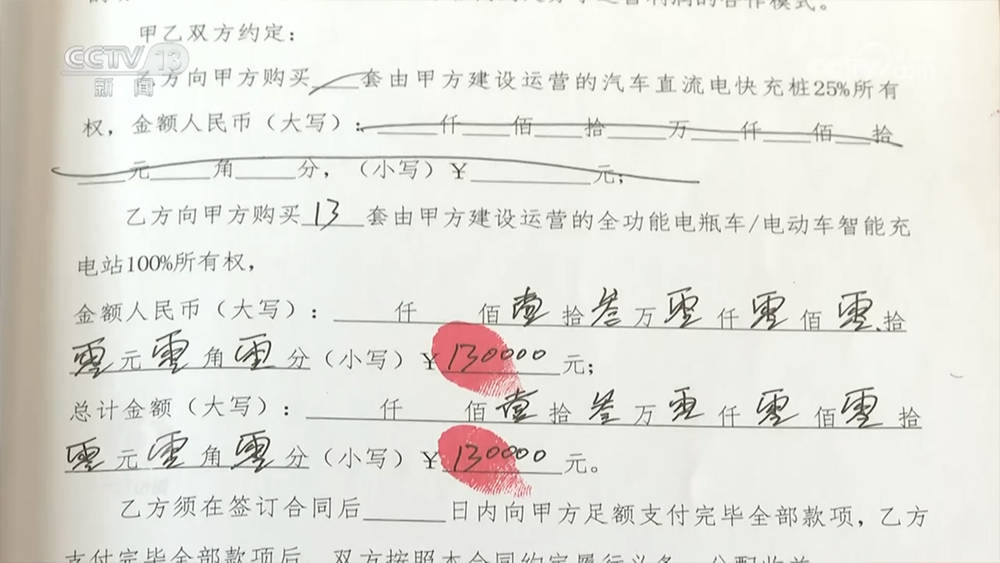 甲乙双方约定:
CCTV 13
新闻
乙方向甲方购买____套由甲方建设运营的汽车直流电快充桩25%所有
权，金额人民币（大写）:____仟____佰____拾____万____仟____佰____拾
____元____角____分，（小写）¥________元;
乙方向甲方购买13套由甲方建设运营的全功能电瓶车/电动车智能充
电站100%所有权，
金额人民币（大写）:____仟____佰壹拾叁万零仟零佰零拾
零元零角零分（小写）¥130000元;
总计金额（大写）:____仟____佰壹拾叁万零仟零佰零拾
零元零角零分（小写）¥130000元。
乙方须在签订合同后____日内向甲方足额支付完毕全部款项，乙方
支付完毕全部款项后，双方按照本合同约定履行义务、分配收益